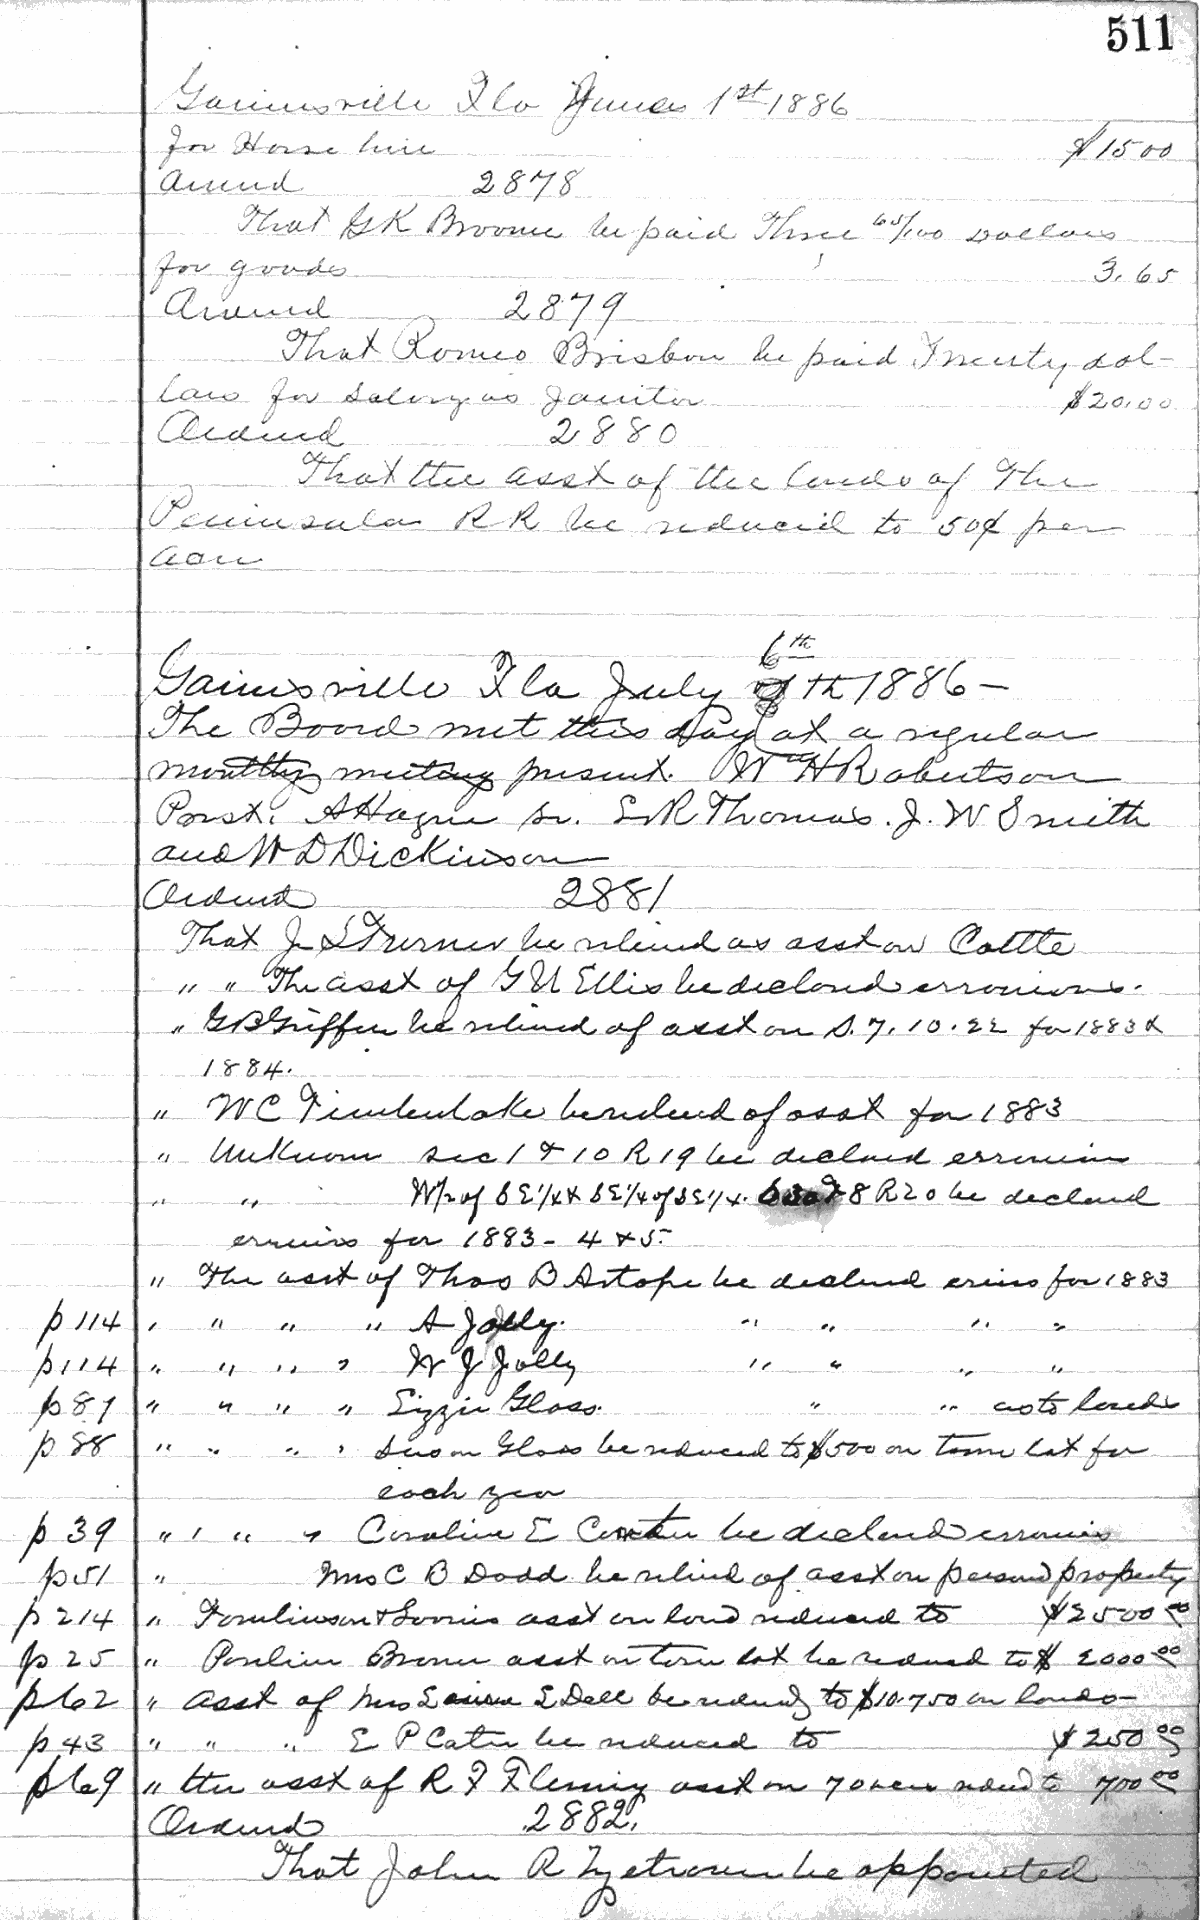 511
Gainesville Fla June 1st 1886
for Horse hire $15 00
Ordered 2878
That G K Broome be paid Three 65/100 Dollars
for goods 3.65
Ordered 2879
That Romeo Brisbon be paid Twenty dol-
lars for salary as Janitor $20.00
Ordered 2880
That the asst of the lands of The
Peninsular R R be reduced to 50¢ per
acre
6th
Gainesville Fla July th 1886 -
The Board met this day at a regular
monthly meeting present. Wm H Robertson
Prest. A Hague Sr. L R Thomas. J. W Smith
and W D Dickinson
Ordered 2881
That J S Turner be relieved as asst on Cattle
" " The asst of G U Ellis be declared erronious.
" G B Griffin be relieved of asst on S. 7. 10. 22 for 1883 &
1884.
" W C Timberlake be relieved of asst for 1883
" Unknown sec 1 T 10 R 19 be declared erronious
" " W½ of SE¼ & SE¼ of SE¼. 8 R 20 be declared
for 1883 - 4 & 5.
" The asst of Thos B be declared for 1883
p 114 " " " " A Jolly. " " " "
p 114 " " " " W J Jolly " " " "
p 87 " " " " Lizzie Glass. " " as to lands
p 88 " " " " Glass be reduced to $500 on town lot for
each year
p 39 " " " " Caroline E be declared
p 51 " Mrs C B Dodd be relieved of asst on personal property
p 214 " Tomlinson & Loomis asst on land reduced to $2500 00
p 25 " Brown asst on town lot be reduced to $ 2000 00
p 62 " asst of Mrs L Dell be reduced to $10.750 on lands -
p 43 " " " E P Cater be reduced to $250 00
p 69 " the asst of R F Fleming asst on 70 acres reduced to 700 00
Ordered 2882.
That John R be appointed